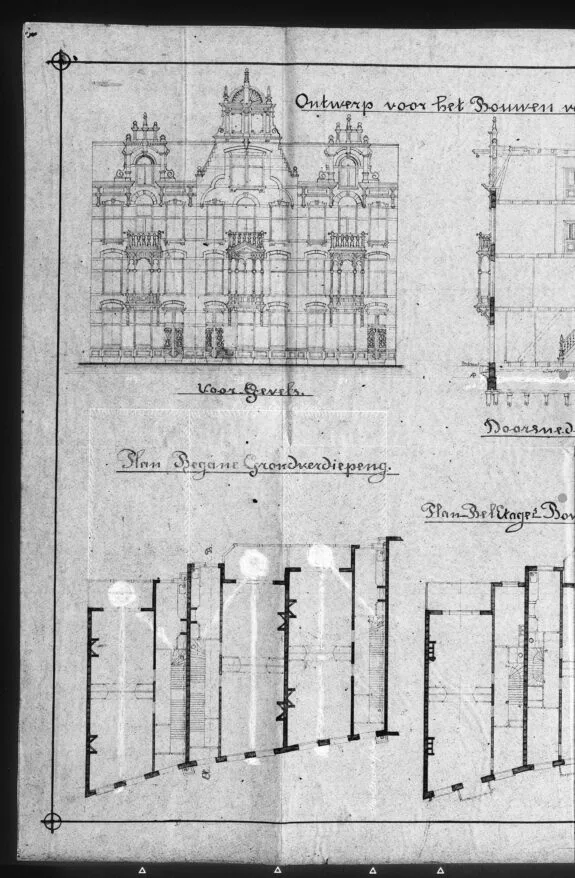 Ontwerp voor het Bouwen
Voor Gevels.
Doorsned
Plan Begane Grondverdiepeng.
Plan Bel Etages Bov